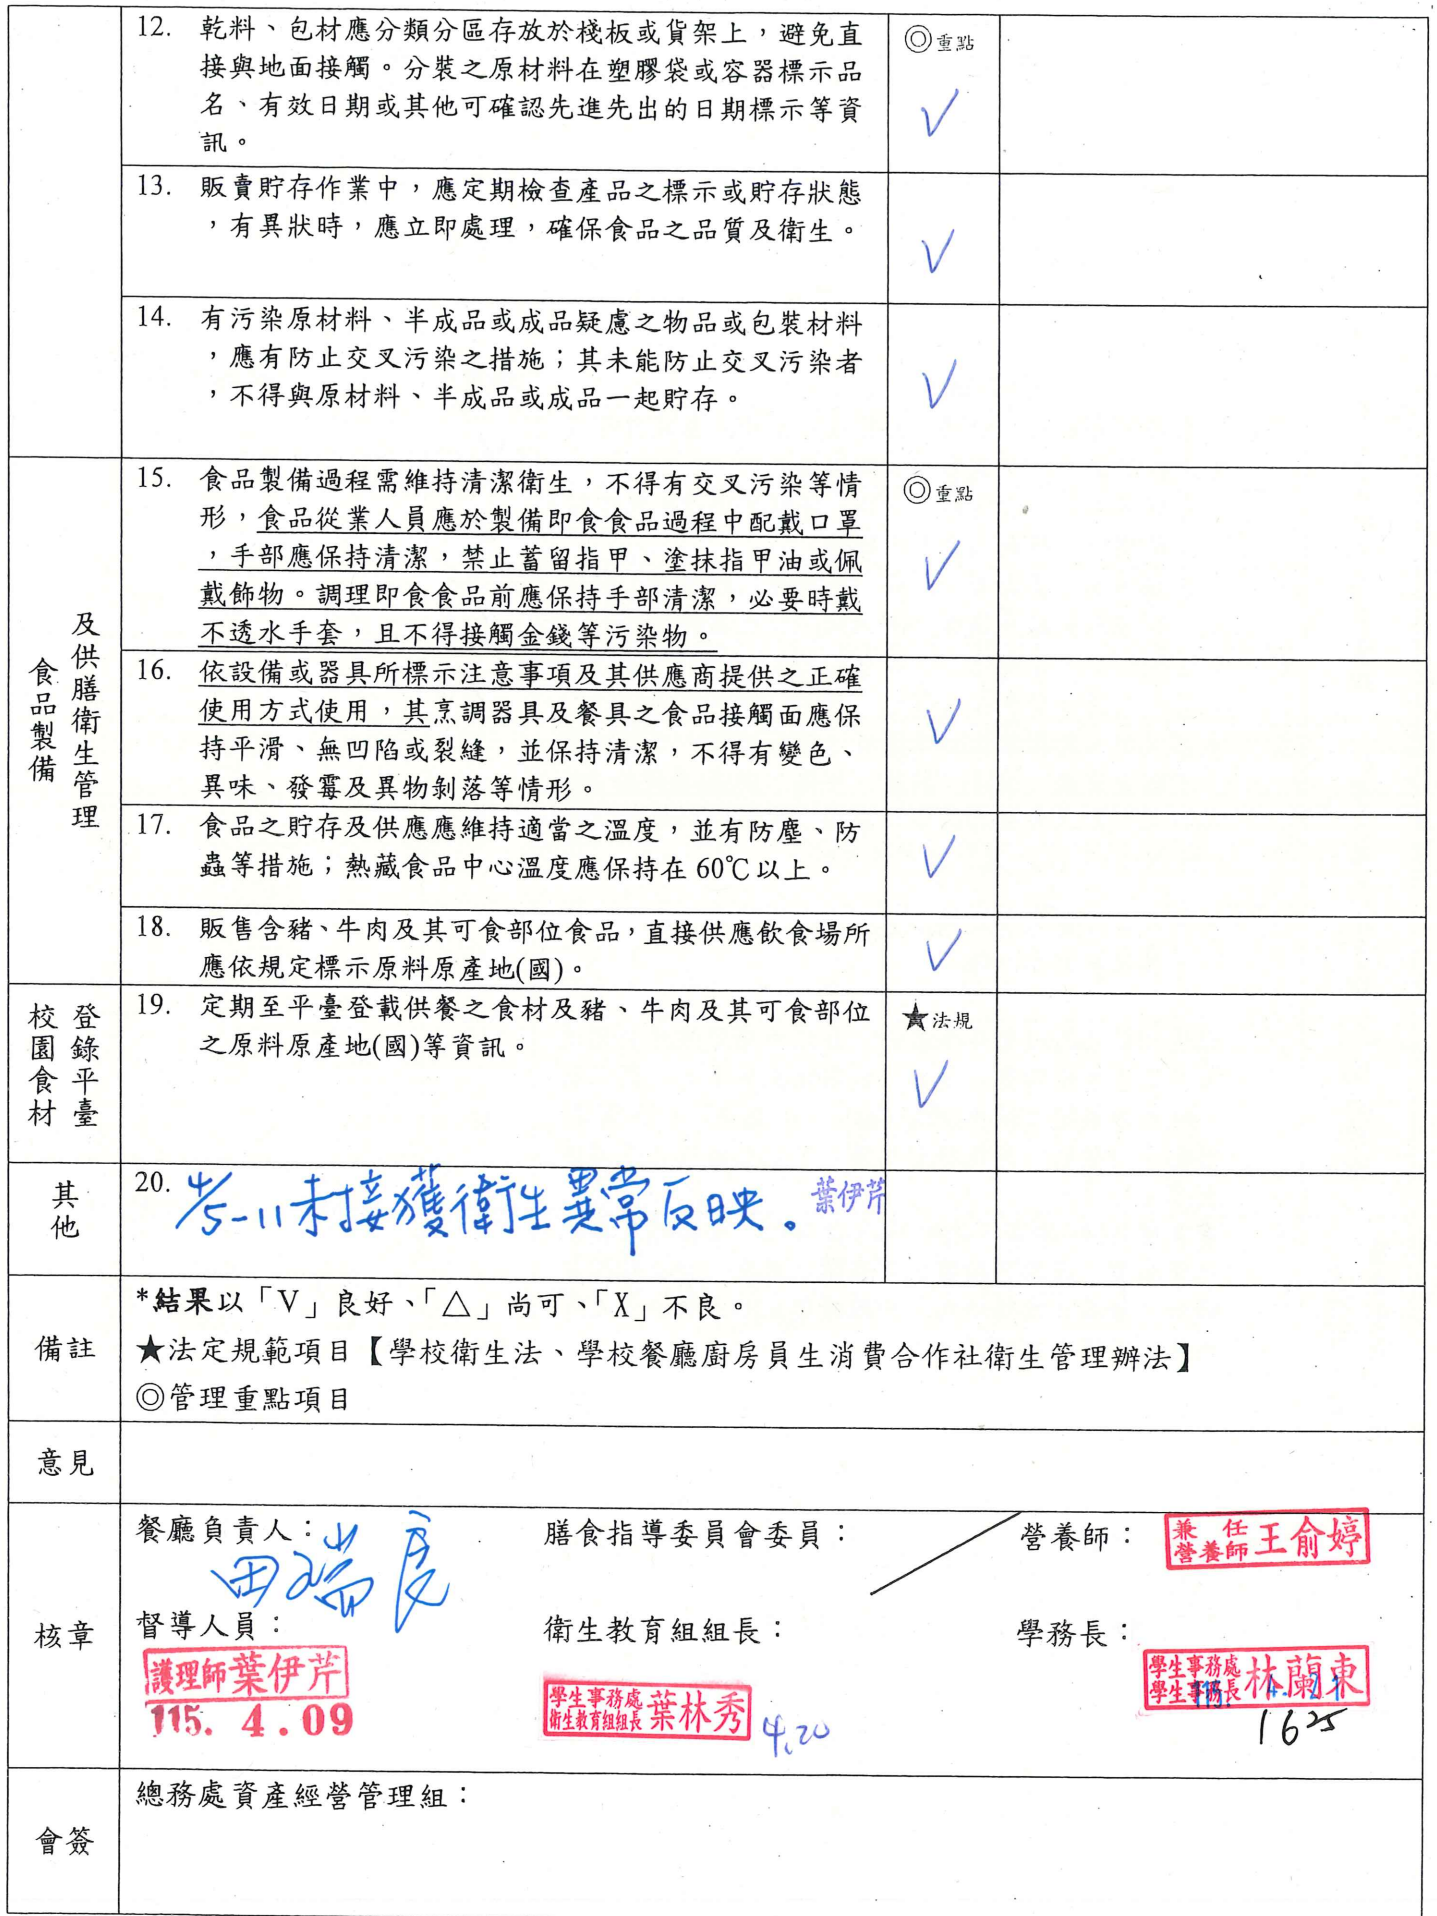 12. 乾料、包材應分類分區存放於棧板或貨架上，避免直
接與地面接觸。分裝之原材料在塑膠袋或容器標示品
名、有效日期或其他可確認先進先出的日期標示等資
訊。
◎重點
V
13. 販賣貯存作業中，應定期檢查產品之標示或貯存狀態
，有異狀時，應立即處理，確保食品之品質及衛生。
V
14. 有污染原材料、半成品或成品疑慮之物品或包裝材料
，應有防止交叉污染之措施；其未能防止交叉污染者
，不得與原材料、半成品或成品一起貯存。
V
食品製備
及供膳衛生管理
15. 食品製備過程需維持清潔衛生，不得有交叉污染等情
形，食品從業人員應於製備即食食品過程中配戴口罩
，手部應保持清潔，禁止蓄留指甲、塗抹指甲油或佩
戴飾物。調理即食食品前應保持手部清潔，必要時戴
不透水手套，且不得接觸金錢等污染物。
◎重點
V
16. 依設備或器具所標示注意事項及其供應商提供之正確
使用方式使用，其烹調器具及餐具之食品接觸面應保
持平滑、無凹陷或裂縫，並保持清潔，不得有變色、
異味、發霉及異物剝落等情形。
V
17. 食品之貯存及供應應維持適當之溫度，並有防塵、防
蟲等措施；熱藏食品中心溫度應保持在 60℃以上。
V
18. 販售含豬、牛肉及其可食部位食品，直接供應飲食場所
應依規定標示原料原產地(國)。
V
校園食材
登錄平臺
19. 定期至平臺登載供餐之食材及豬、牛肉及其可食部位
之原料原產地(國)等資訊。
★法規
V
其他
20. 4/5-11未接獲衛生異常反映。 葉伊芹
備註
*結果以「V」良好、「△」尚可、「X」不良。
★法定規範項目【學校衛生法、學校餐廳廚房員生消費合作社衛生管理辦法】
◎管理重點項目
意見
核章
餐廳負責人： 膳食指導委員會委員： 營養師：
兼任
營養師 王俞婷
督導人員： 衛生教育組組長： 學務長：
護理師葉伊芹
115. 4.09
學生事務處
衛生教育組組長 葉林秀
4.20
學生事務處
學生事務長 林蘭東
1625
會簽
總務處資產經營管理組：